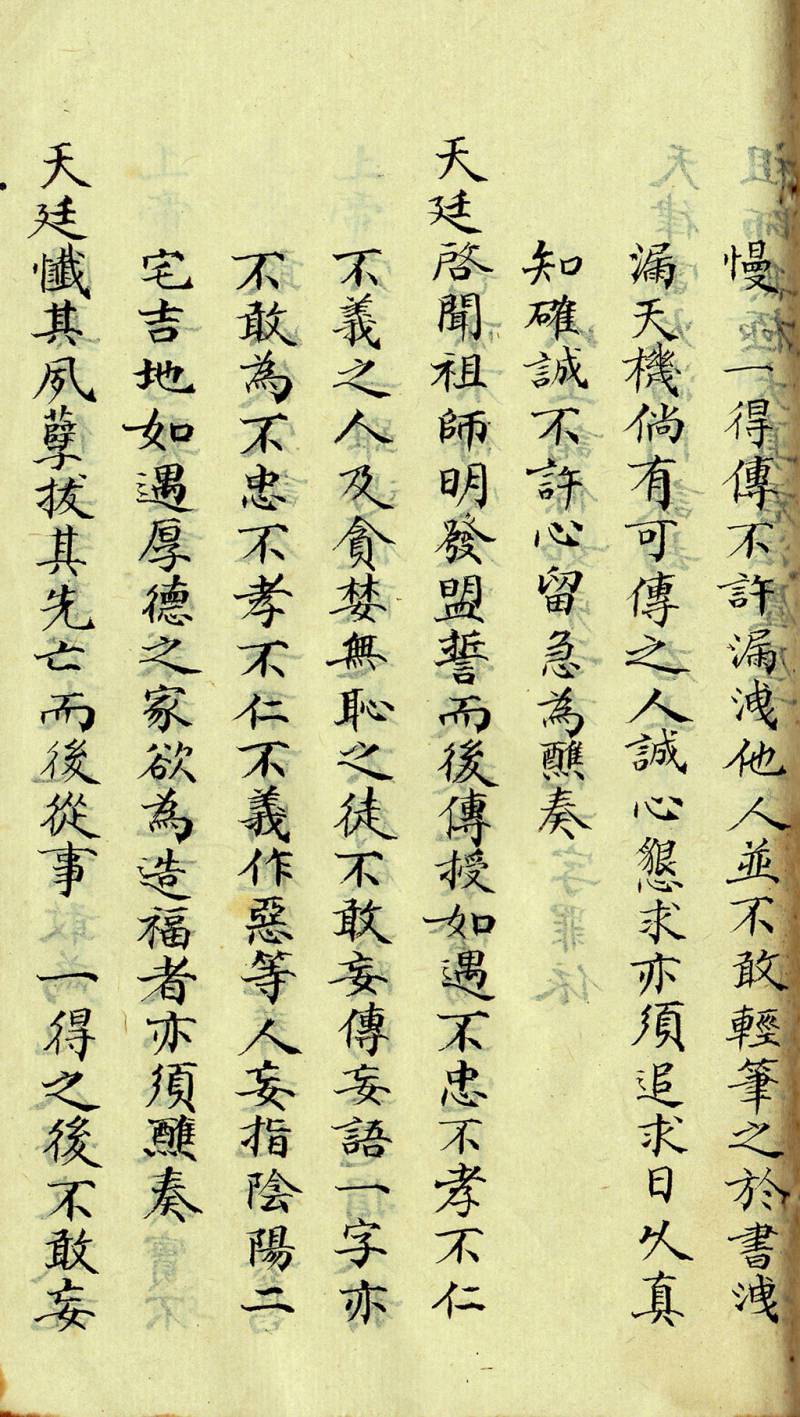 慢　一得傳不許漏洩他人並不敢輕筆之於書洩
漏天機倘有可傳之人誠心懇求亦須追求日久真
知確誠不許心留急為醮奏
天廷啓聞祖師明發盟誓而後傳授如遇不忠不孝不仁
不義之人及貪婪無恥之徒不敢妄傳妄語一字亦
不敢為不忠不孝不仁不義作惡等人妄指陰陽二
宅吉地如遇厚德之家欲為造福者亦須醮奏
天廷懺其夙孽拔其先亡而後從事　一得之後不敢妄